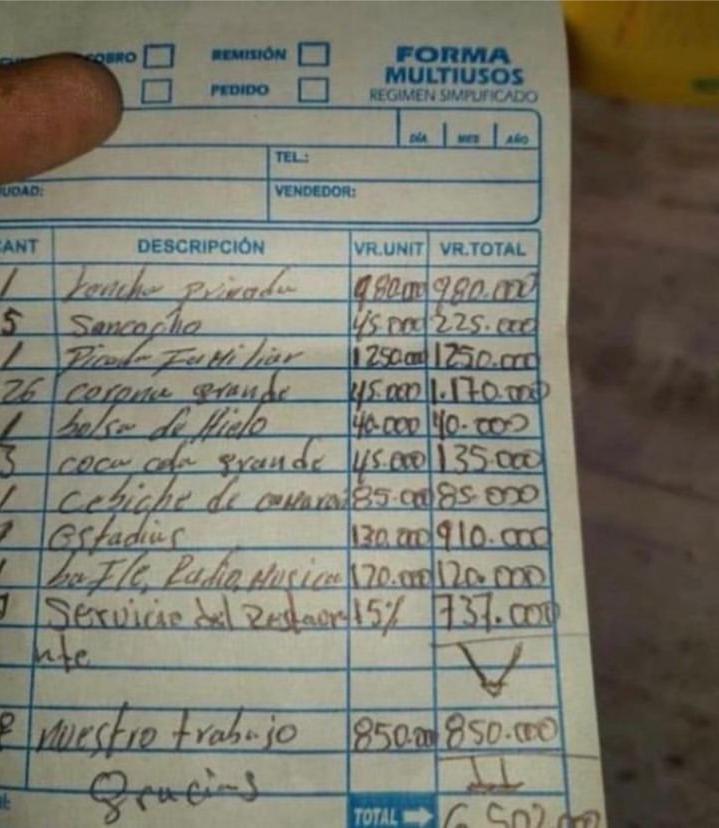 COBRO REMISIÓN FORMA
MULTIUSOS
PEDIDO REGIMEN SIMPLIFICADO
DÍA MES AÑO
TEL.:
UDAD: VENDEDOR:
CANT DESCRIPCIÓN VR.UNIT VR.TOTAL
1 Lancha Privada 980.000 980.000
5 Sancocho 45.000 225.000
1 Picada Familiar 1250.000 1250.000
26 corona grande 45.000 1.170.000
1 bolsa de Hielo 40.000 40.000
3 coca cola grande 45.000 135.000
1 Cebiche de 85.000 85.000
Estadias 130.000 910.000
bafle, Radio, Musica 120.000 120.000
Servicio del Restaura 15% 737.000
nte
nuestro trabajo 850.000 850.000
Gracias
TOTAL 6.502.000